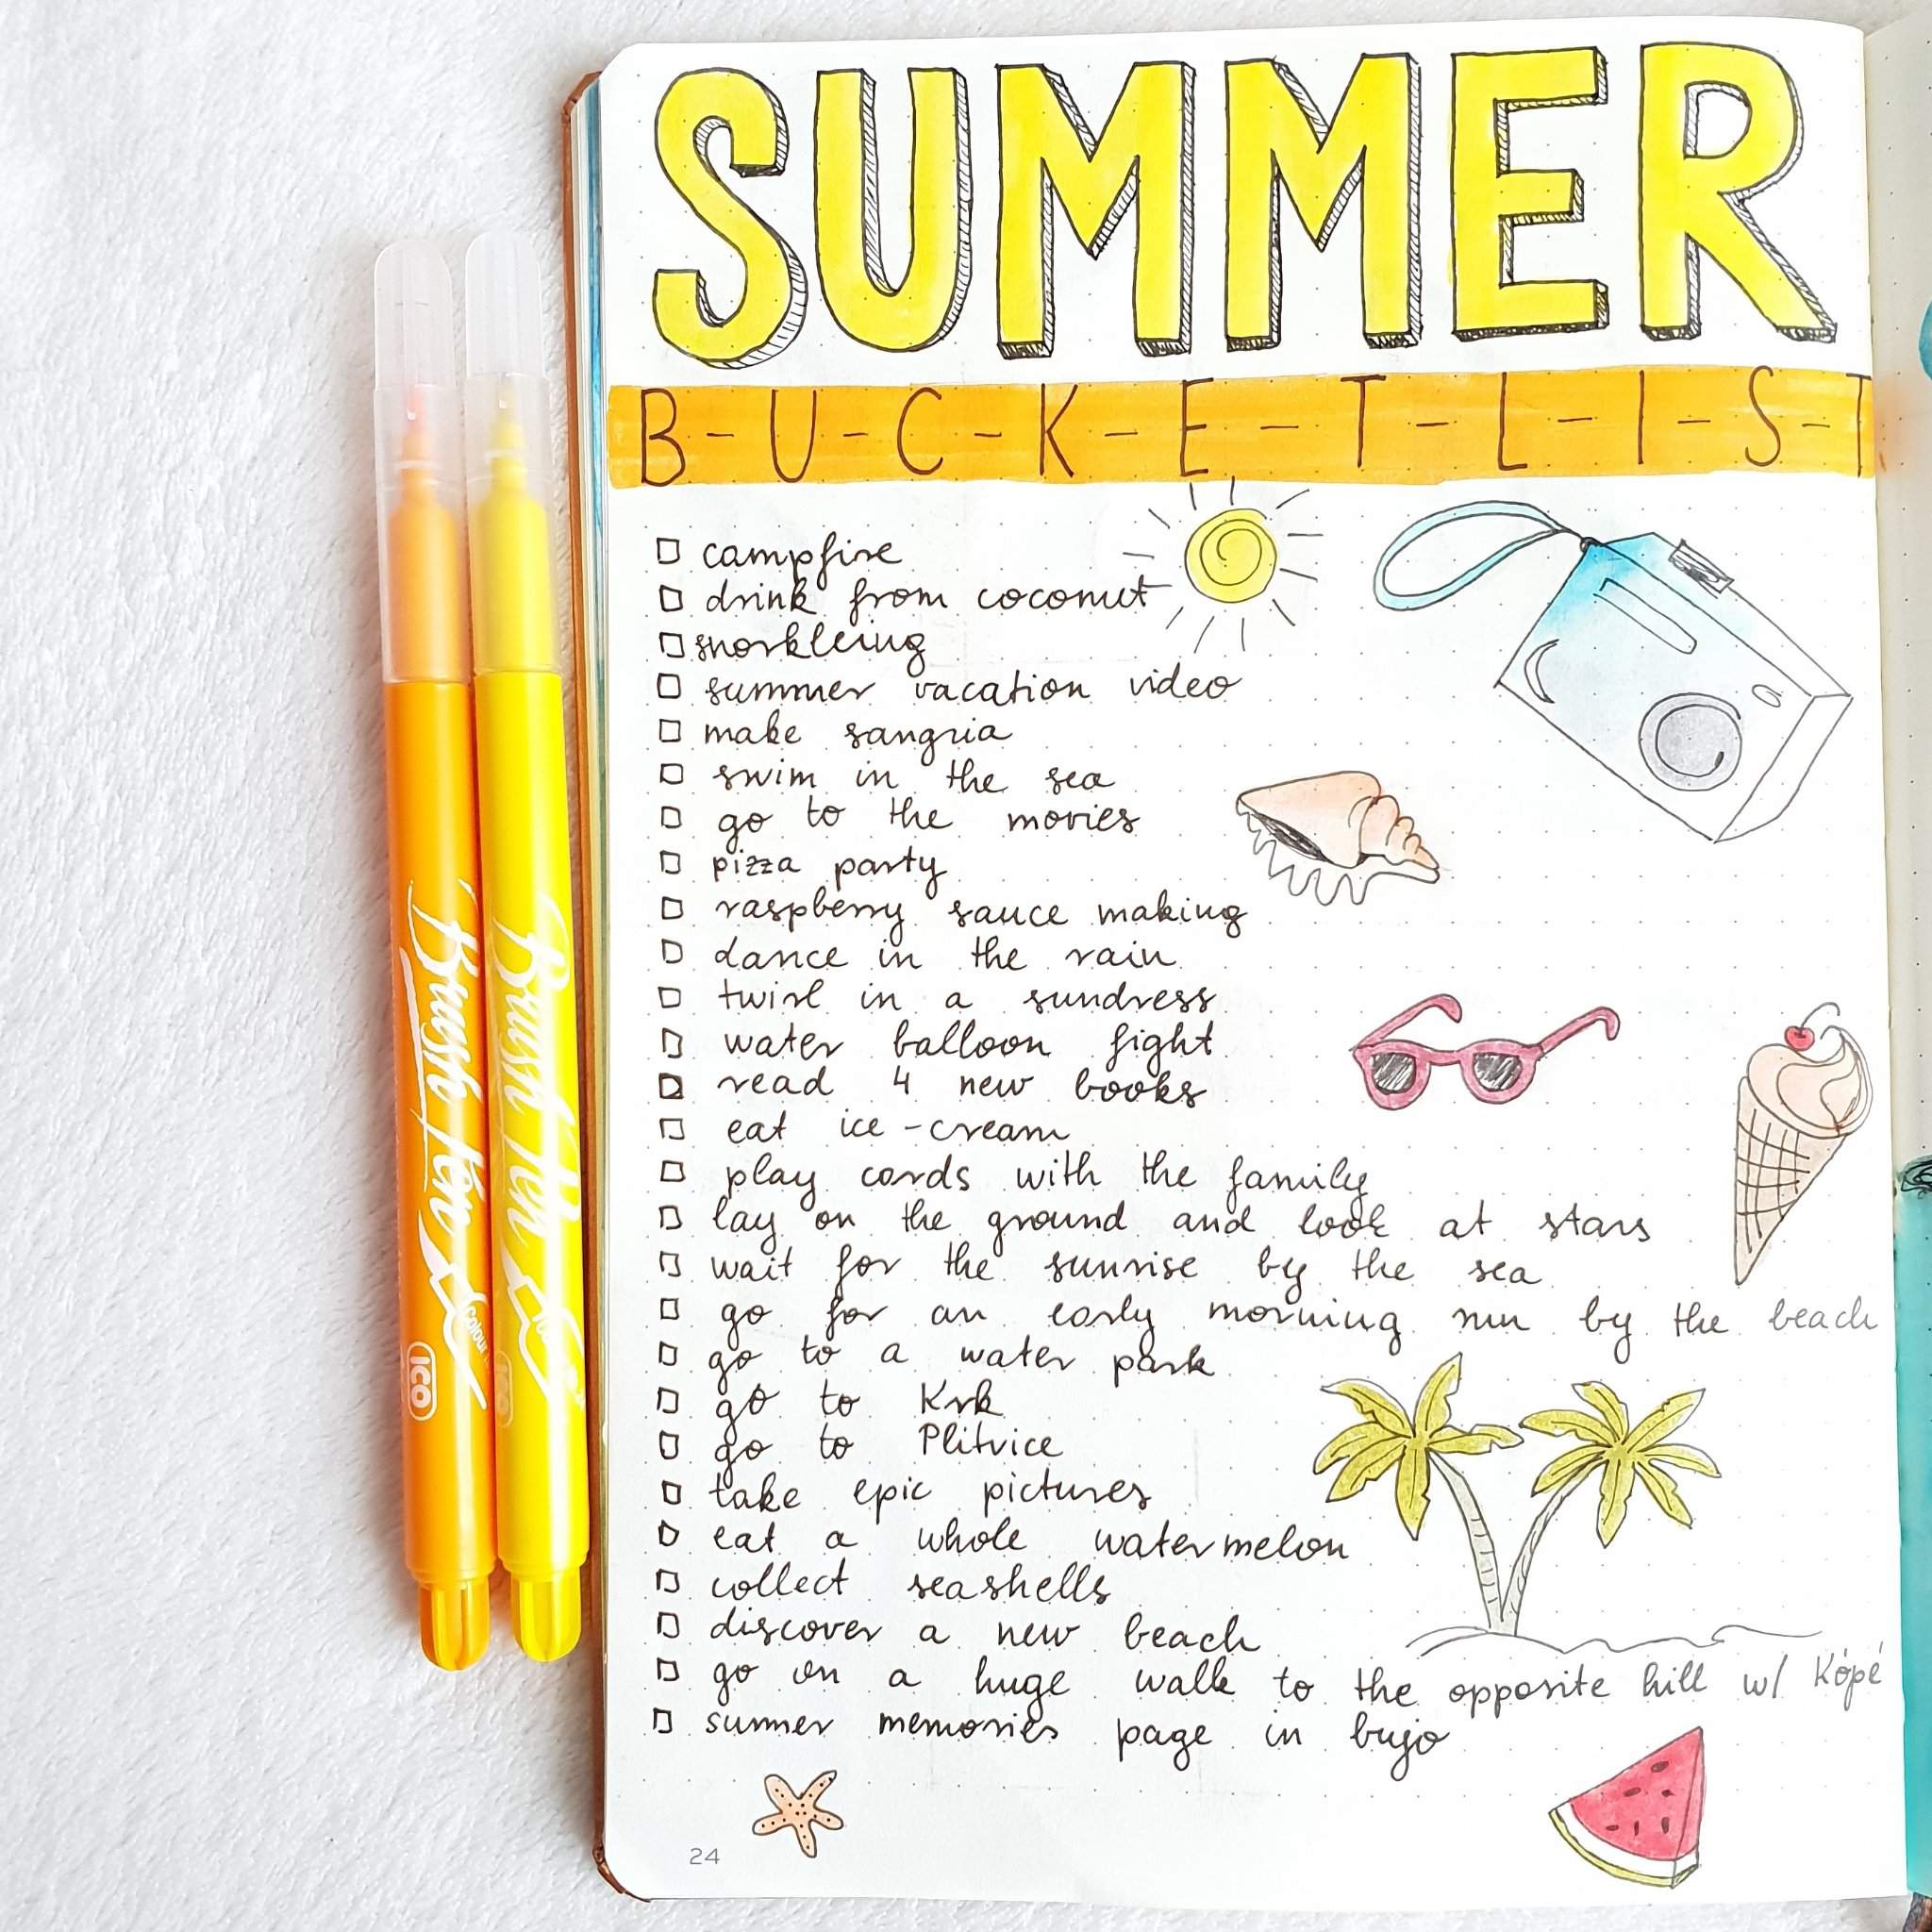 SUMMER
B-U-C-K-E-T-L-I-S-T
campfire
drink from coconut
snorkleing
summer vacation video
make sangria
swim in the sea
go to the movies
pizza party
raspberry sauce making
dance in the rain
twirl in a sundress
water balloon fight
read 4 new books
eat ice-cream
play cards with the family
lay on the ground and look at stars
wait for the sunrise by the sea
go for an early morning run by the beach
go to a water park
go to Krk
go to Plitvice
take epic pictures
eat a whole watermelon
collect seashells
discover a new beach
go on a huge walk to the opposite hill w/ Kópé
summer memories page in bujo
24
Brush Pen
ICO
Brush Pen